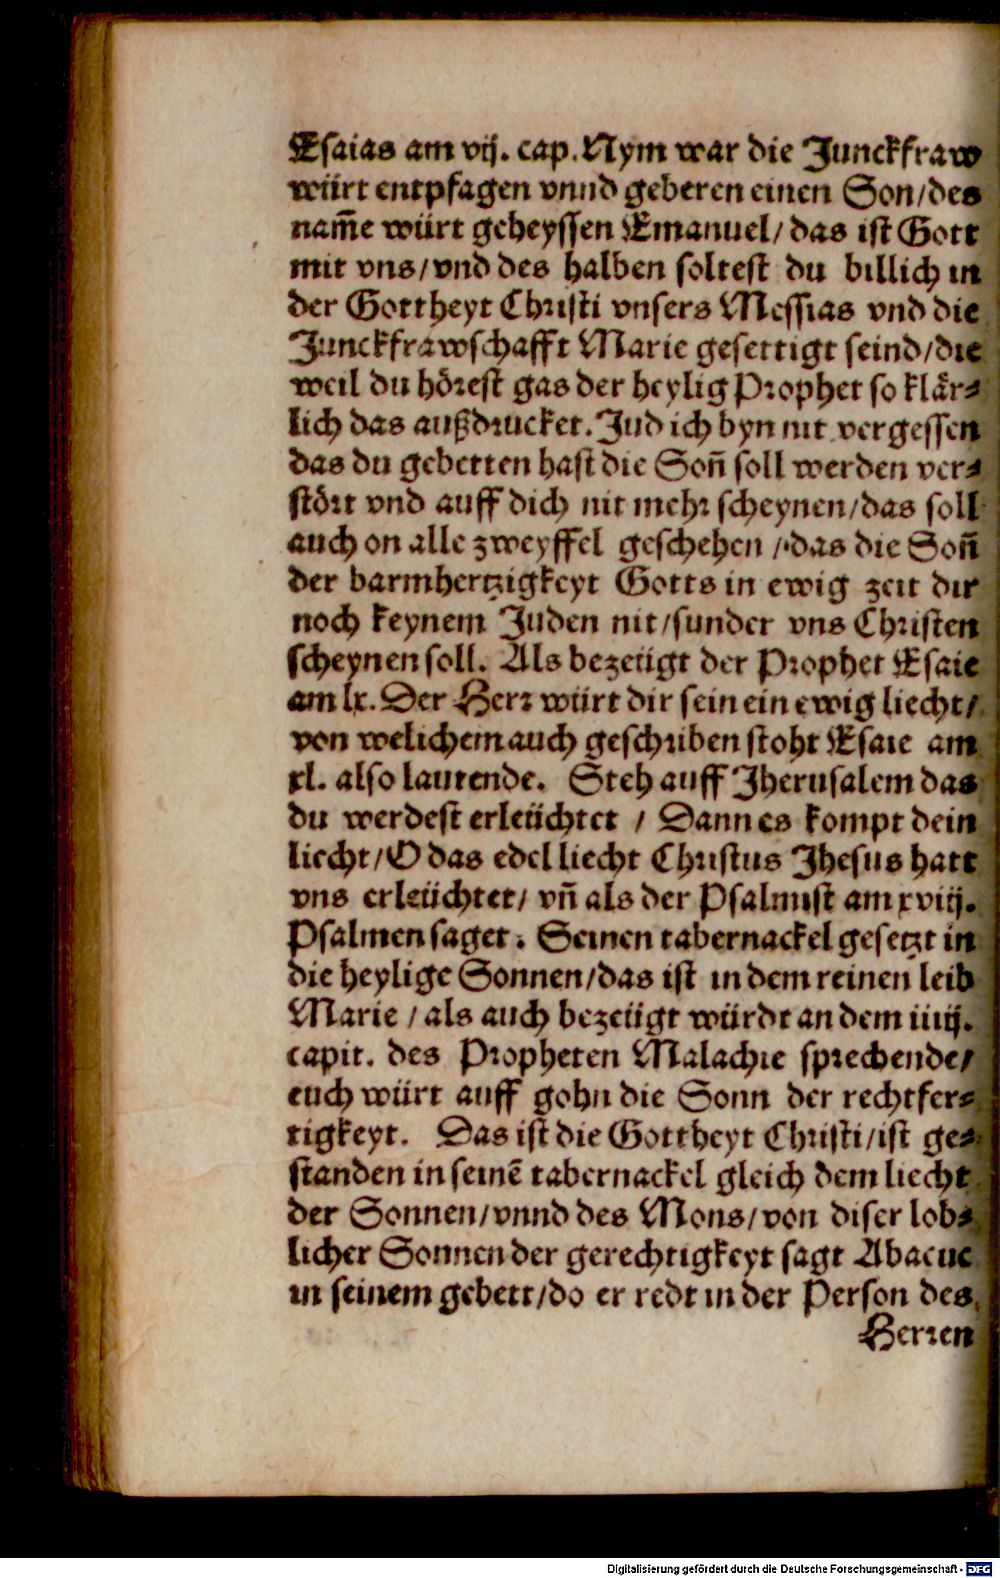 Esaias am vij. cap. Nym war die Junckfraw
würt entpfagen vnnd geberen einen Son/des
nam̄e würt geheyssen Emanuel/ das ist Gott
mit vns/vnd des halben soltest du billich in
der Gottheyt Christi vnsers Messias vnd die
Junckfrawschafft Marie gesettigt seind/die
weil du hörest gas der heylig Prophet so klär⸗
lich das außdrucket. Jud ich byn nit vergessen
das du gebetten hast die Son̄ soll werden ver⸗
stört vnd auff dich nit mehr scheynen/das soll
auch on alle zweyffel geschehen /das die Son̄
der barmhertzigkeyt Gotts in ewig zeit dir
noch keynem Juden nit/sunder vns Christen
scheynen soll. Als bezeügt der Prophet Esaie
am lx. Der Herr würt dir sein ein ewig liecht/
von welichem auch geschriben stoht Esaie am
xl. also lautende. Steh auff Jherusalem das
du werdest erleüchtet / Dann es kompt dein
liecht/O das edel liecht Christus Jhesus hatt
vns erleüchtet/ vn̄ als der Psalmist am xviij.
Psalmen saget. Seinen tabernackel gesetzt in
die heylige Sonnen/das ist in dem reinen leib
Marie / als auch bezeügt würdt an dem iiij.
capit. des Propheten Malachie sprechende/
euch würt auff gohn die Sonn der rechtfer⸗
tigkeyt. Das ist die Gottheyt Christi/ist ge⸗
standen in seinē tabernackel gleich dem liecht
der Sonnen/vnnd des Mons/von diser lob⸗
licher Sonnen der gerechtigkeyt sagt Abacuc
in seinem gebett/do er redt in der Person des
Herren
Digitalisierung gefördert durch die Deutsche Forschungsgemeinschaft - DFG